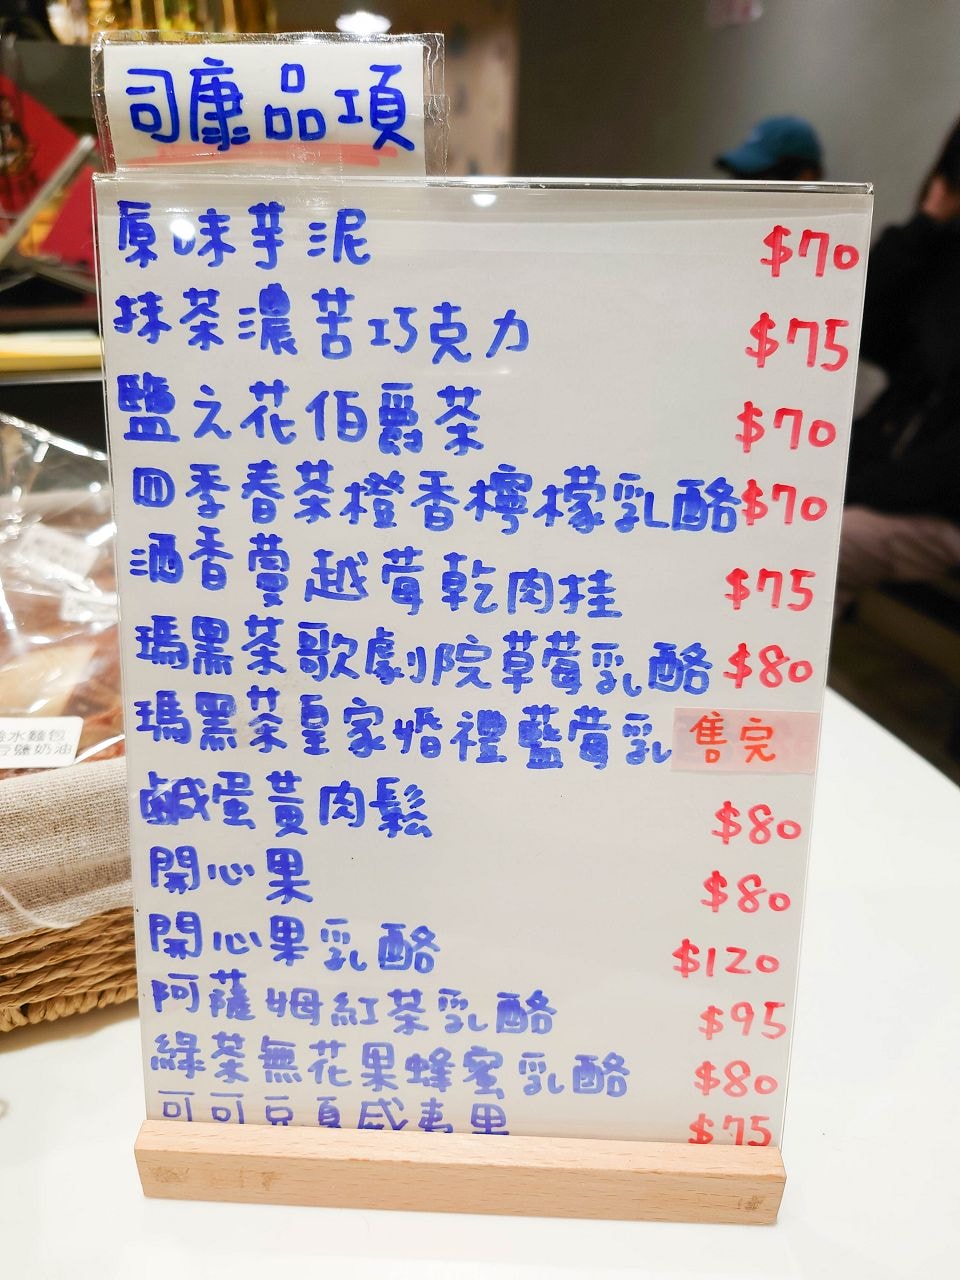 司康品項
原味芋泥 $70
抹茶濃苦巧克力 $75
鹽之花伯爵茶 $70
四季春茶橙香檸檬乳酪 $70
酒香蔓越莓乾肉桂 $75
瑪黑茶歌劇院草莓乳酪 $80
瑪黑茶皇家婚禮藍莓乳 售完
鹹蛋黃肉鬆 $80
開心果 $80
開心果乳酪 $120
阿薩姆紅茶乳酪 $95
綠茶無花果蜂蜜乳酪 $80
可可豆夏威夷果 $75
水麵包
鹽奶油